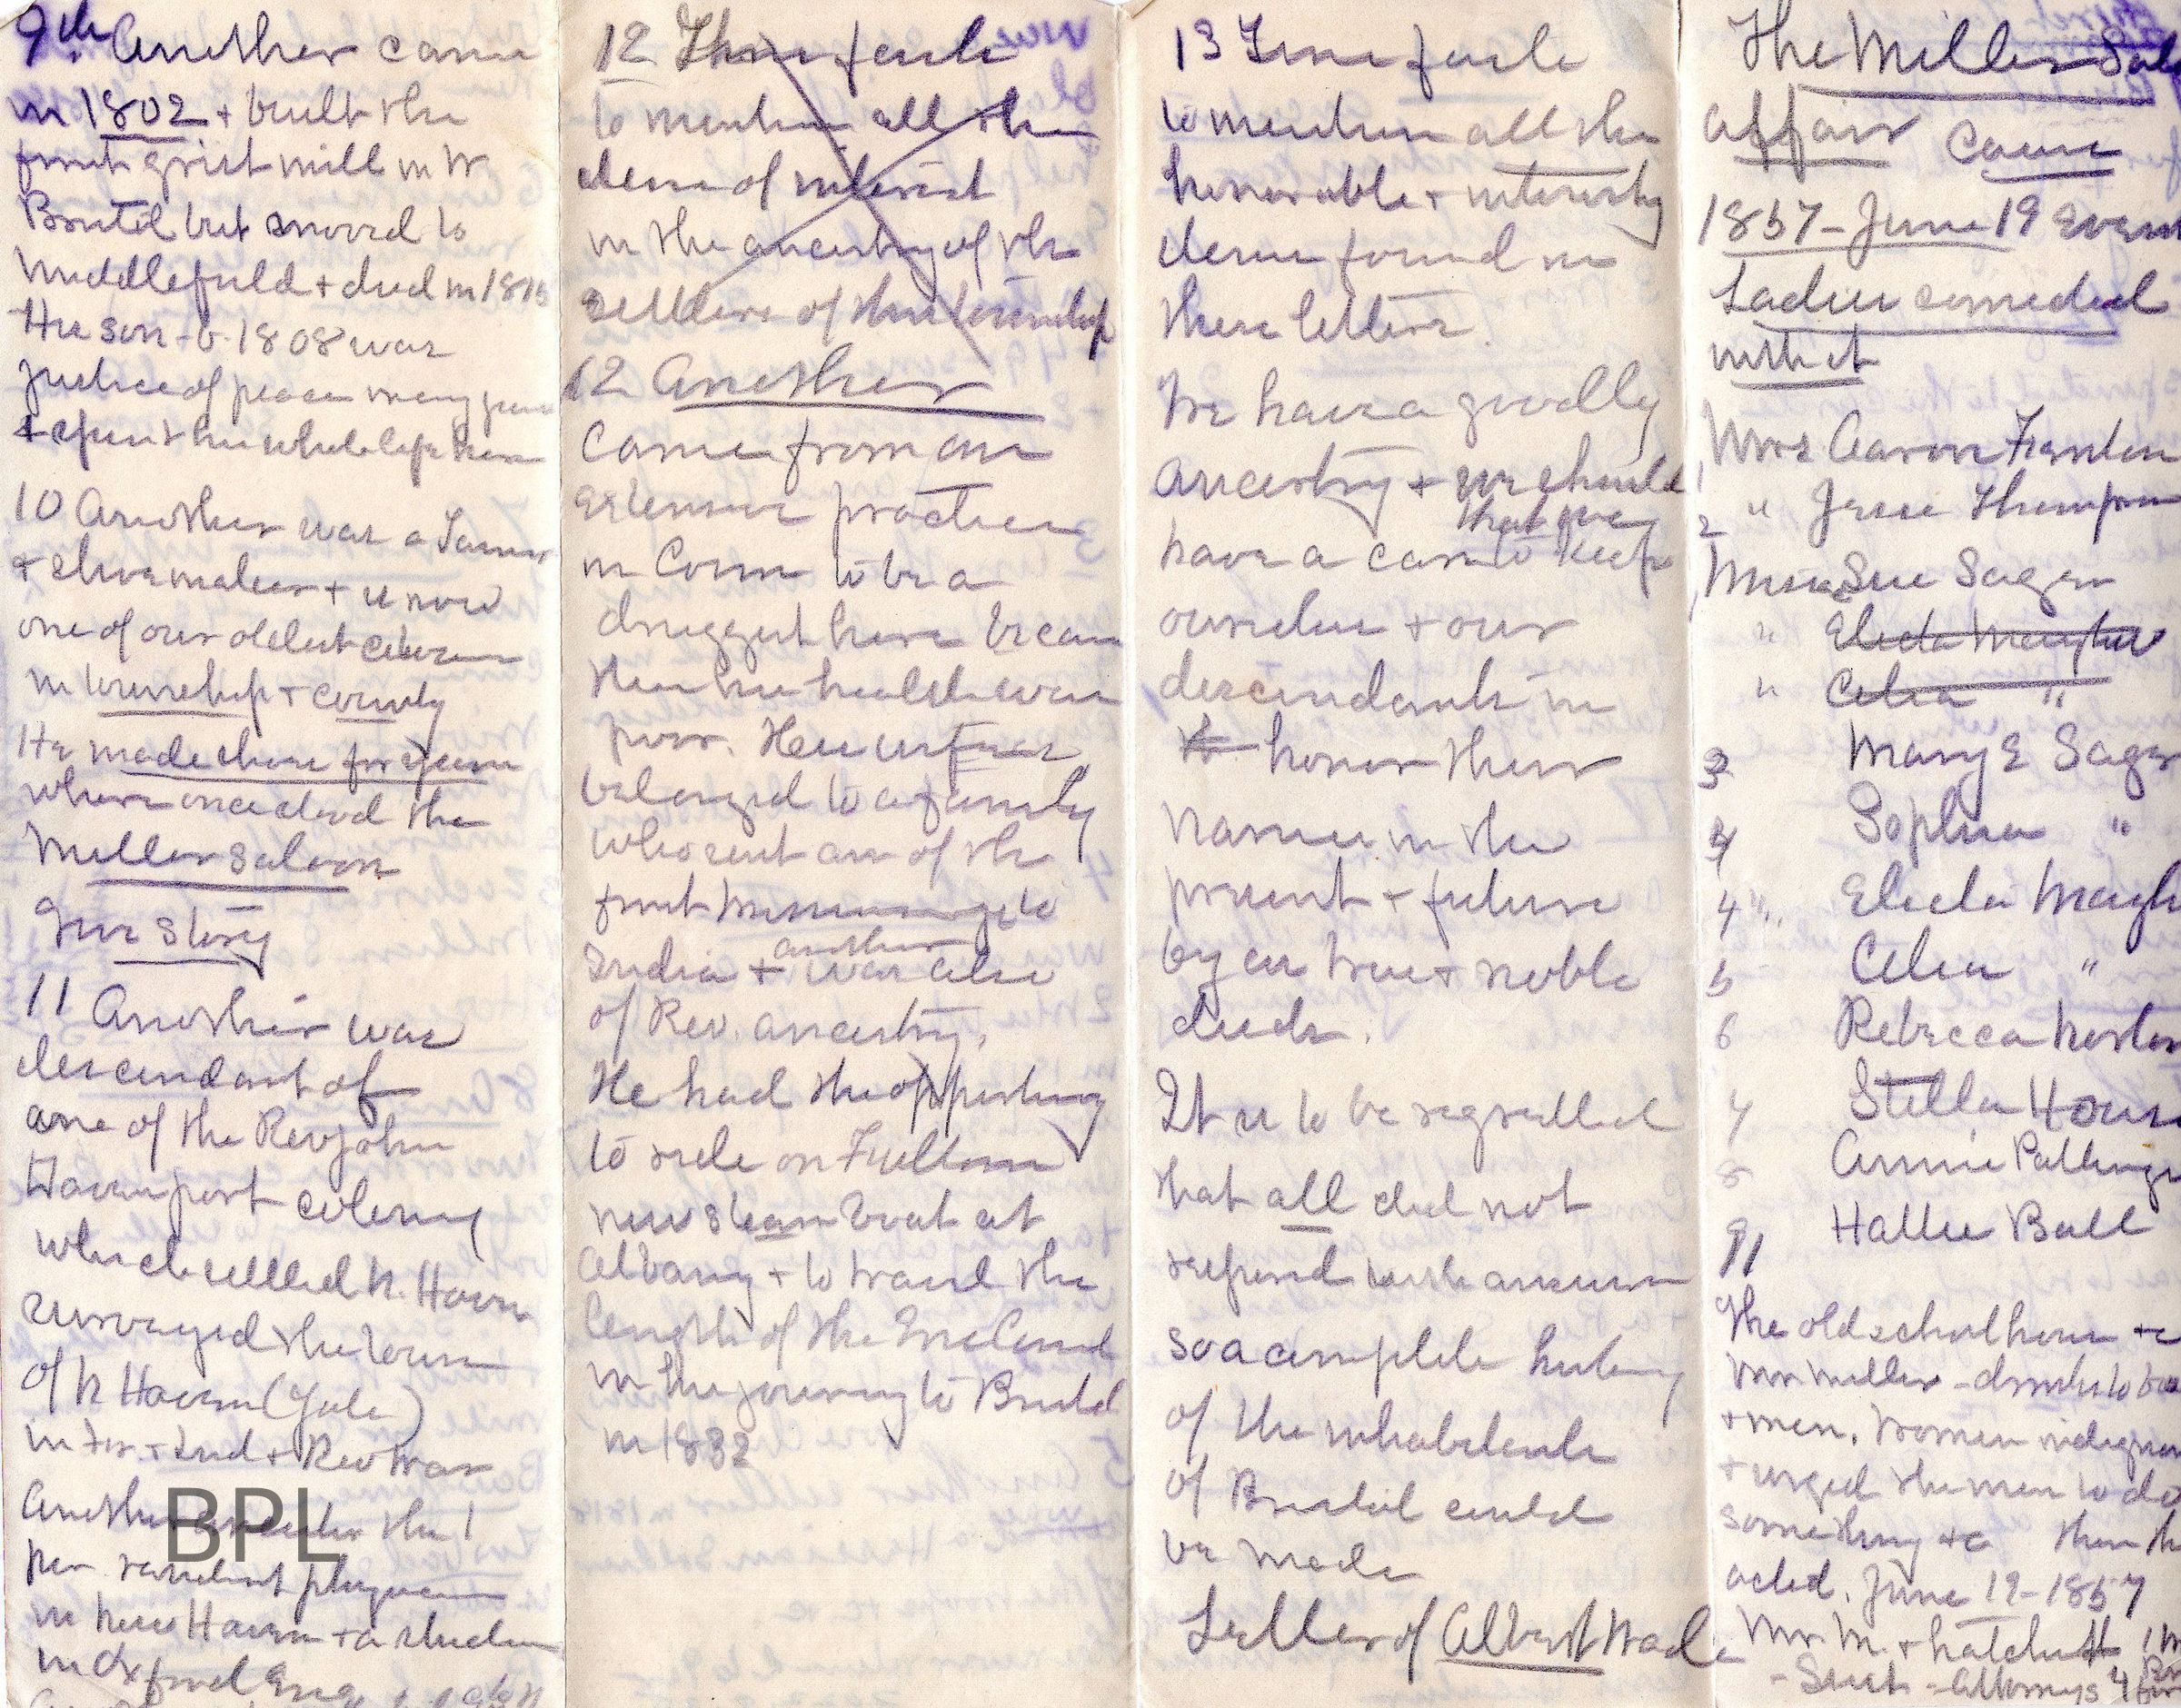 9th Another came
in 1802 + built the
first grist mill in W
Bristol but moved to
Middlefield + died in
His son - b. 1808 was
justice of peace many years
+ spent his whole life here
10 Another was a Tanner
+ shoemaker + is now
one of our oldest citizens
in township + county
He made shoes for years
where once stood the
Miller saloon
Give story
11 Another was
descendant of
one of the Rev John
Davenport colony
which settled N. Haven
surveyed the town
of N Haven (Yale)
in Fr. + Ind + Rev War
Another the 1
resident
in New Haven + a student
in Oxford Eng
BPL
12 Time fails
to mention all the
items of interest
in the ancestry of the
settlers of this township
12 Another
came from an
extensive practice
in Conn to be a
druggist here because
then his health was
poor. His wife was
belonged to a family
who sent one of the
first missionaries to
India + another was also
of Rev. ancestry.
He had the opportunity
to ride on Fultons
new steam boat at
Albany + to travel the
length of the Erie Canal
in his journey to Bristol
in 1832
13 Time fails
to mention all the
honorable + interesting
items found in
these letters.
We have a goodly
ancestry + we should
have a care that we to keep
ourselves + our
descendants in
to honor their
names in the
present + future
by our true + noble
deeds.
It is to be regretted
that all did not
respond with answers
so a complete history
of the inhabitants
of Bristol could
be made
Letter of Albert Wade
The Miller Saloon
affair Came
1857 - June 19 Event
Ladies connected
with it
1 Mrs Aaron
2 " Jesse Thompson
Misses Sue Sager
" Electa Mayhew
" Celia "
3 Mary E Sager
4 Sophia "
4 " Electa Mayh
5 Celia "
6 Rebecca Norton
7 Stella House
8 Annie
9 Hallie Ball
The old school house + c
Mr Miller - drinks to boys
+ men. Women indignant
+ urged the men to do
something +c then th
acted. June 19 - 1857
Mr M. + hatchet
- Suit - Attorneys 4